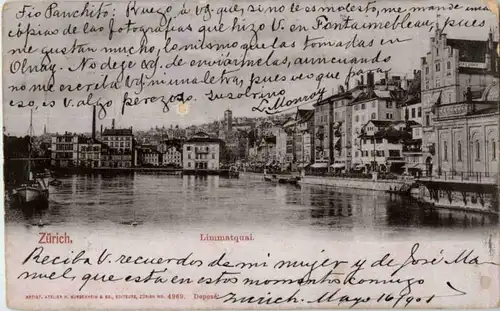 Tio Panchito: Ruego a vd. que, si no le es molesto, me mande
copias de las fotografías que hizo V. en Fontainebleau, pues
me gustan mucho, lo mismo que las tomadas en
Olnay. No deje vd. de enviarmelas, aun cuando
no me escriba V. ni una letra, pues veo que para
eso, es V. algo perezoso. Su sobrino
L. Monroy
Zürich.
Limmatquai.
Reciba V. recuerdos de mi mujer y de José Ma-
nuel, que está en estos momentos conmigo
Zurich. Mayo 16/901
ARTIST. ATELIER H. GUGGENHEIM & Co., EDITEURS, ZÜRICH No. 4969. Deposé